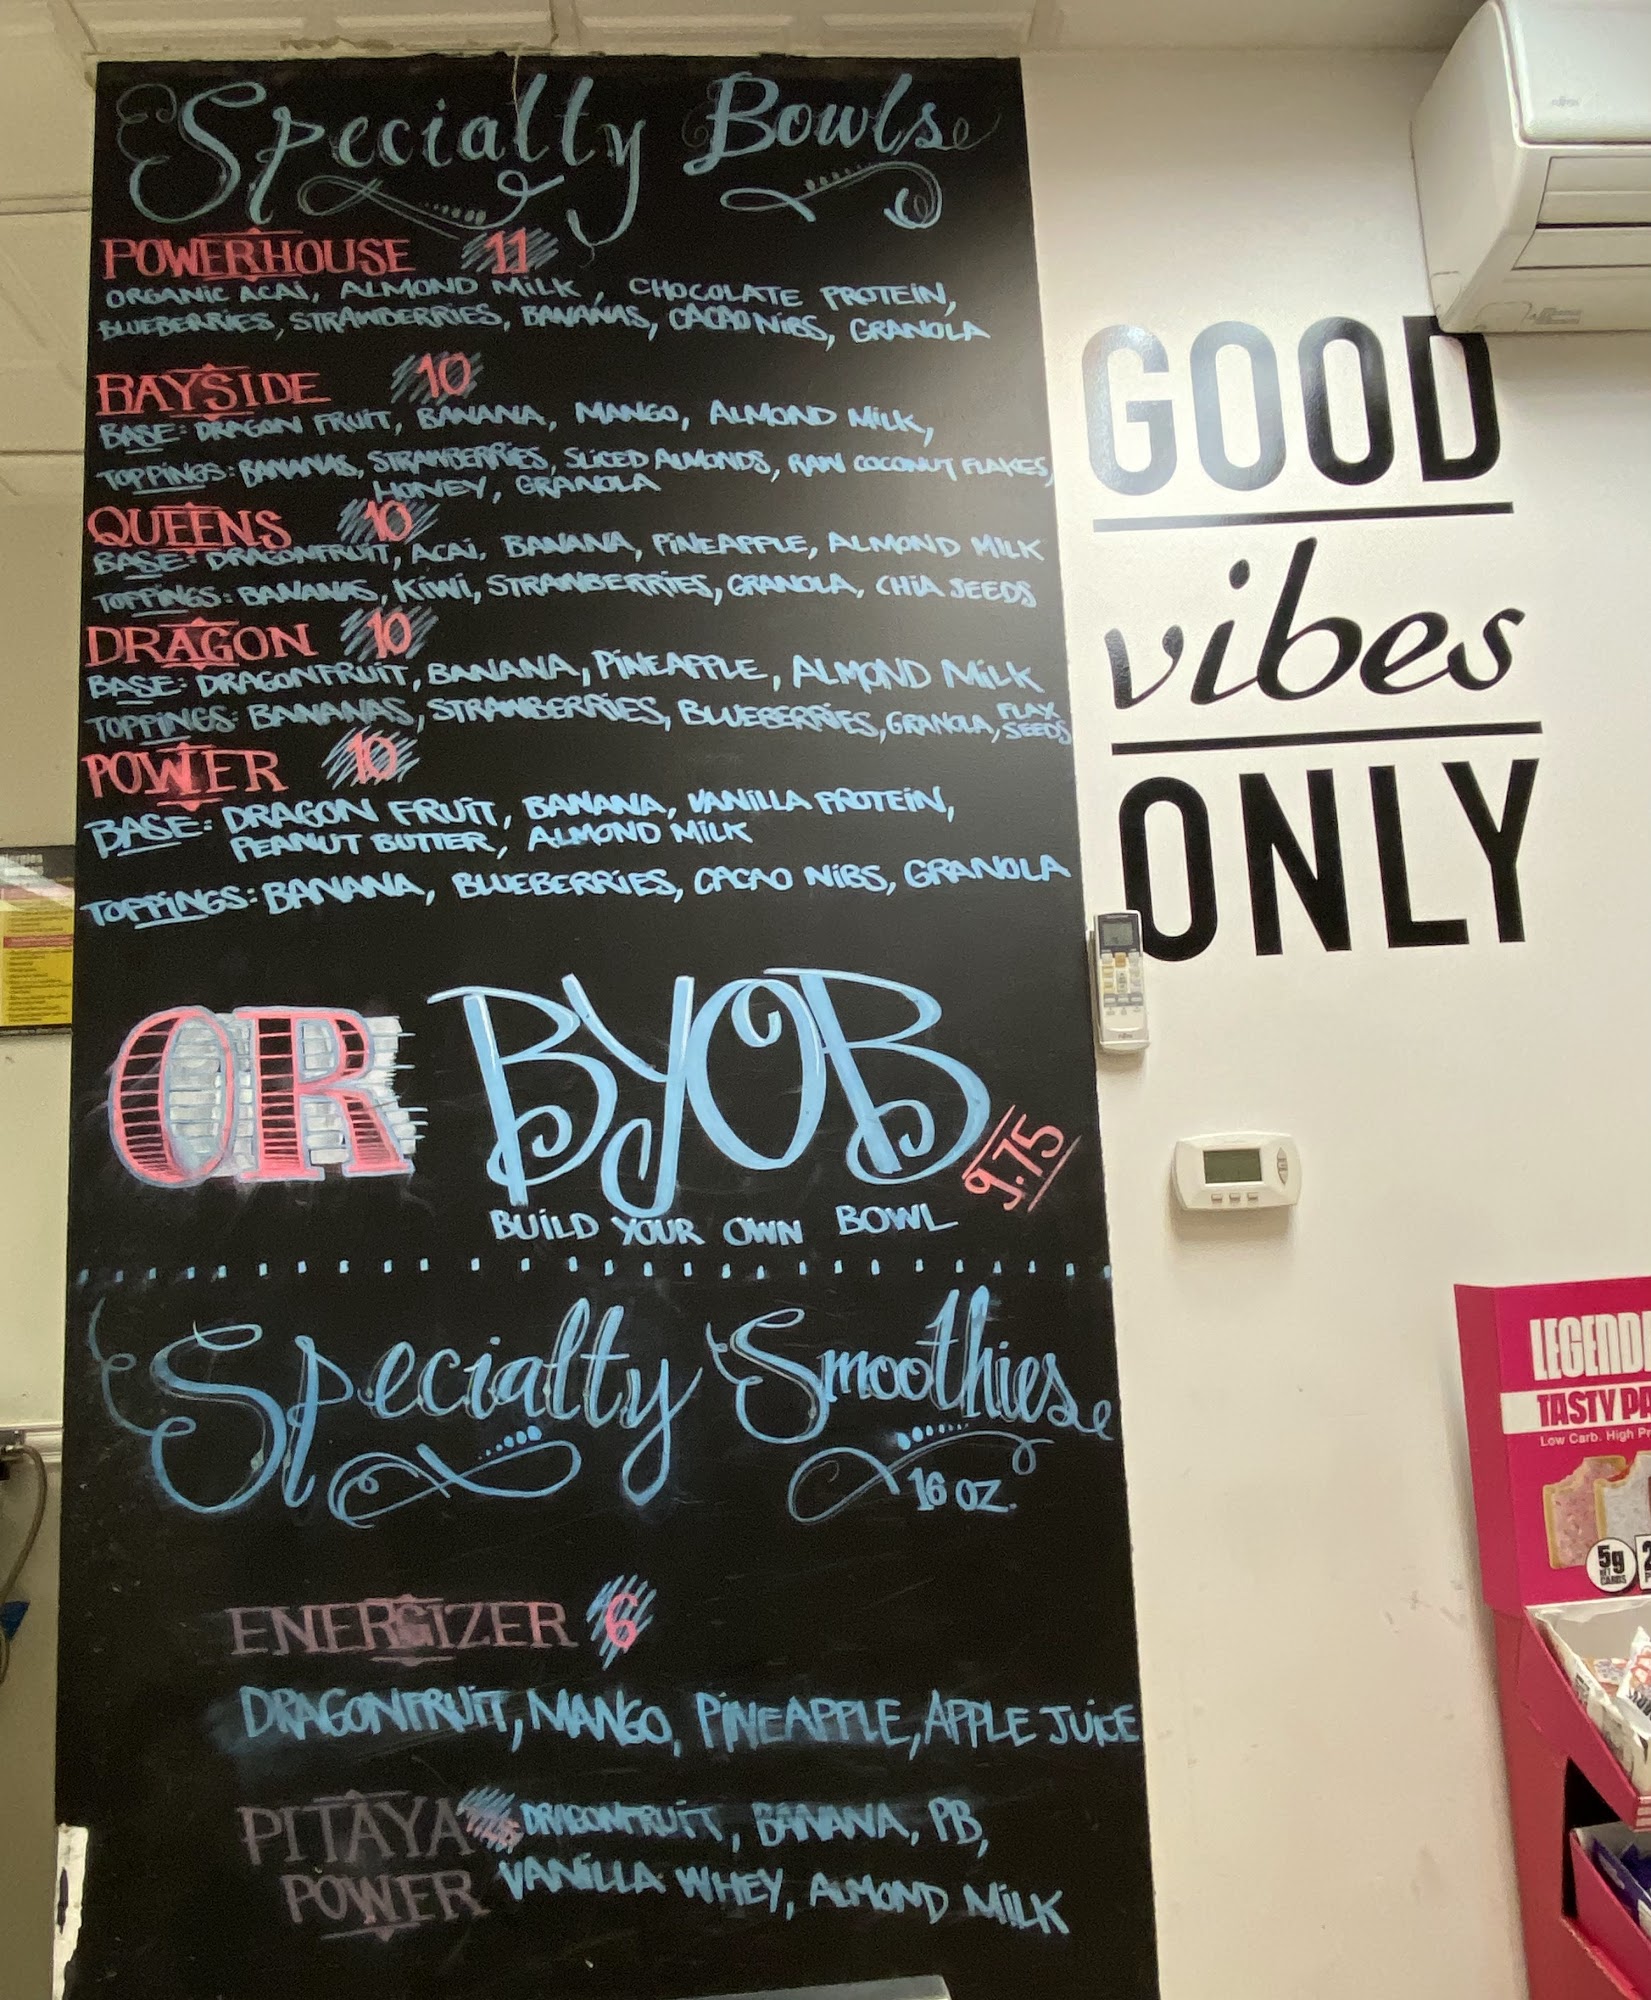 Specialty Bowls
POWERHOUSE 11
ORGANIC ACAI, ALMOND MILK, CHOCOLATE PROTEIN,
BLUEBERRIES, STRAWBERRIES, BANANAS, CACAO NIBS, GRANOLA
BAYSIDE 10
BASE: DRAGON FRUIT, BANANA, MANGO, ALMOND MILK,
TOPPINGS: BANANAS, STRAWBERRIES, SLICED ALMONDS, RAW COCONUT FLAKES,
HONEY, GRANOLA
QUEENS 10
BASE: DRAGONFRUIT, ACAI, BANANA, PINEAPPLE, ALMOND MILK
TOPPINGS: BANANAS, KIWI, STRAWBERRIES, GRANOLA, CHIA SEEDS
DRAGON 10
BASE: DRAGONFRUIT, BANANA, PINEAPPLE, ALMOND MILK
TOPPINGS: BANANAS, STRAWBERRIES, BLUEBERRIES, GRANOLA, FLAX SEEDS
POWER 10
BASE: DRAGON FRUIT, BANANA, VANILLA PROTEIN,
PEANUT BUTTER, ALMOND MILK
TOPPINGS: BANANA, BLUEBERRIES, CACAO NIBS, GRANOLA
OR BYOB 9.75
BUILD YOUR OWN BOWL
Specialty Smoothies
16 OZ.
ENERGIZER 6
DRAGONFRUIT, MANGO, PINEAPPLE, APPLE JUICE
PITAYA DRAGONFRUIT, BANANA, PB,
POWER VANILLA WHEY, ALMOND MILK
GOOD
vibes
ONLY
LEGEND
TASTY PA
Low Carb. High Pr
5g
NET
CARBS
2